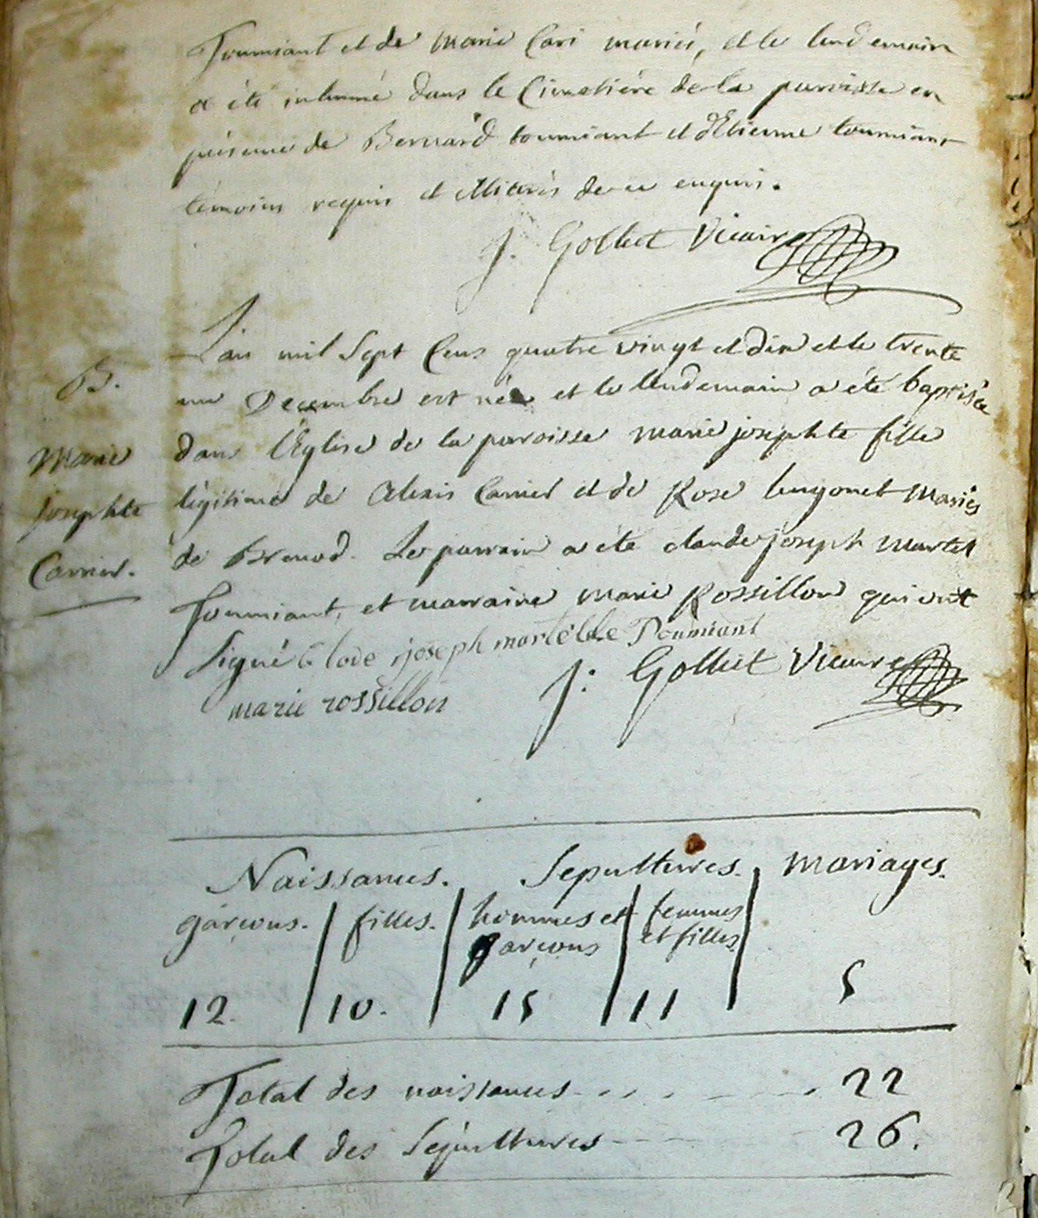 Tourniant et de marie Cari mariés, et le lendemain
a été inhumé dans le Cimetière de la paroisse en
présence de Bernard tourniant et d'Etienne tourniant
témoins requis et illitérés de ce enquis.
J. Golliet Vicaire
L'an mil Sept Cens quatre vingt et dix et le trente
un Decembre est née et le lendemain a été baptisée
dans l'Eglise de la paroisse marie josephte fille
légitime de Alexis Carrier et de Rose hugonet mariés
de Brenod. Le parrain a été claude joseph martel
Tourniant, et marraine marie Rossillon qui ont
Signé Clode joseph martel Tourniant
marie rossillon
J: Golliet Vicaire
B.
Marie
josephte
Carrier.
Naissances. Sepultures. Mariages.
garçons. filles. hommes et garçons femmes et filles.
12. 10. 15 11 5
Total des naissances 22
Total des Sépultures 26.